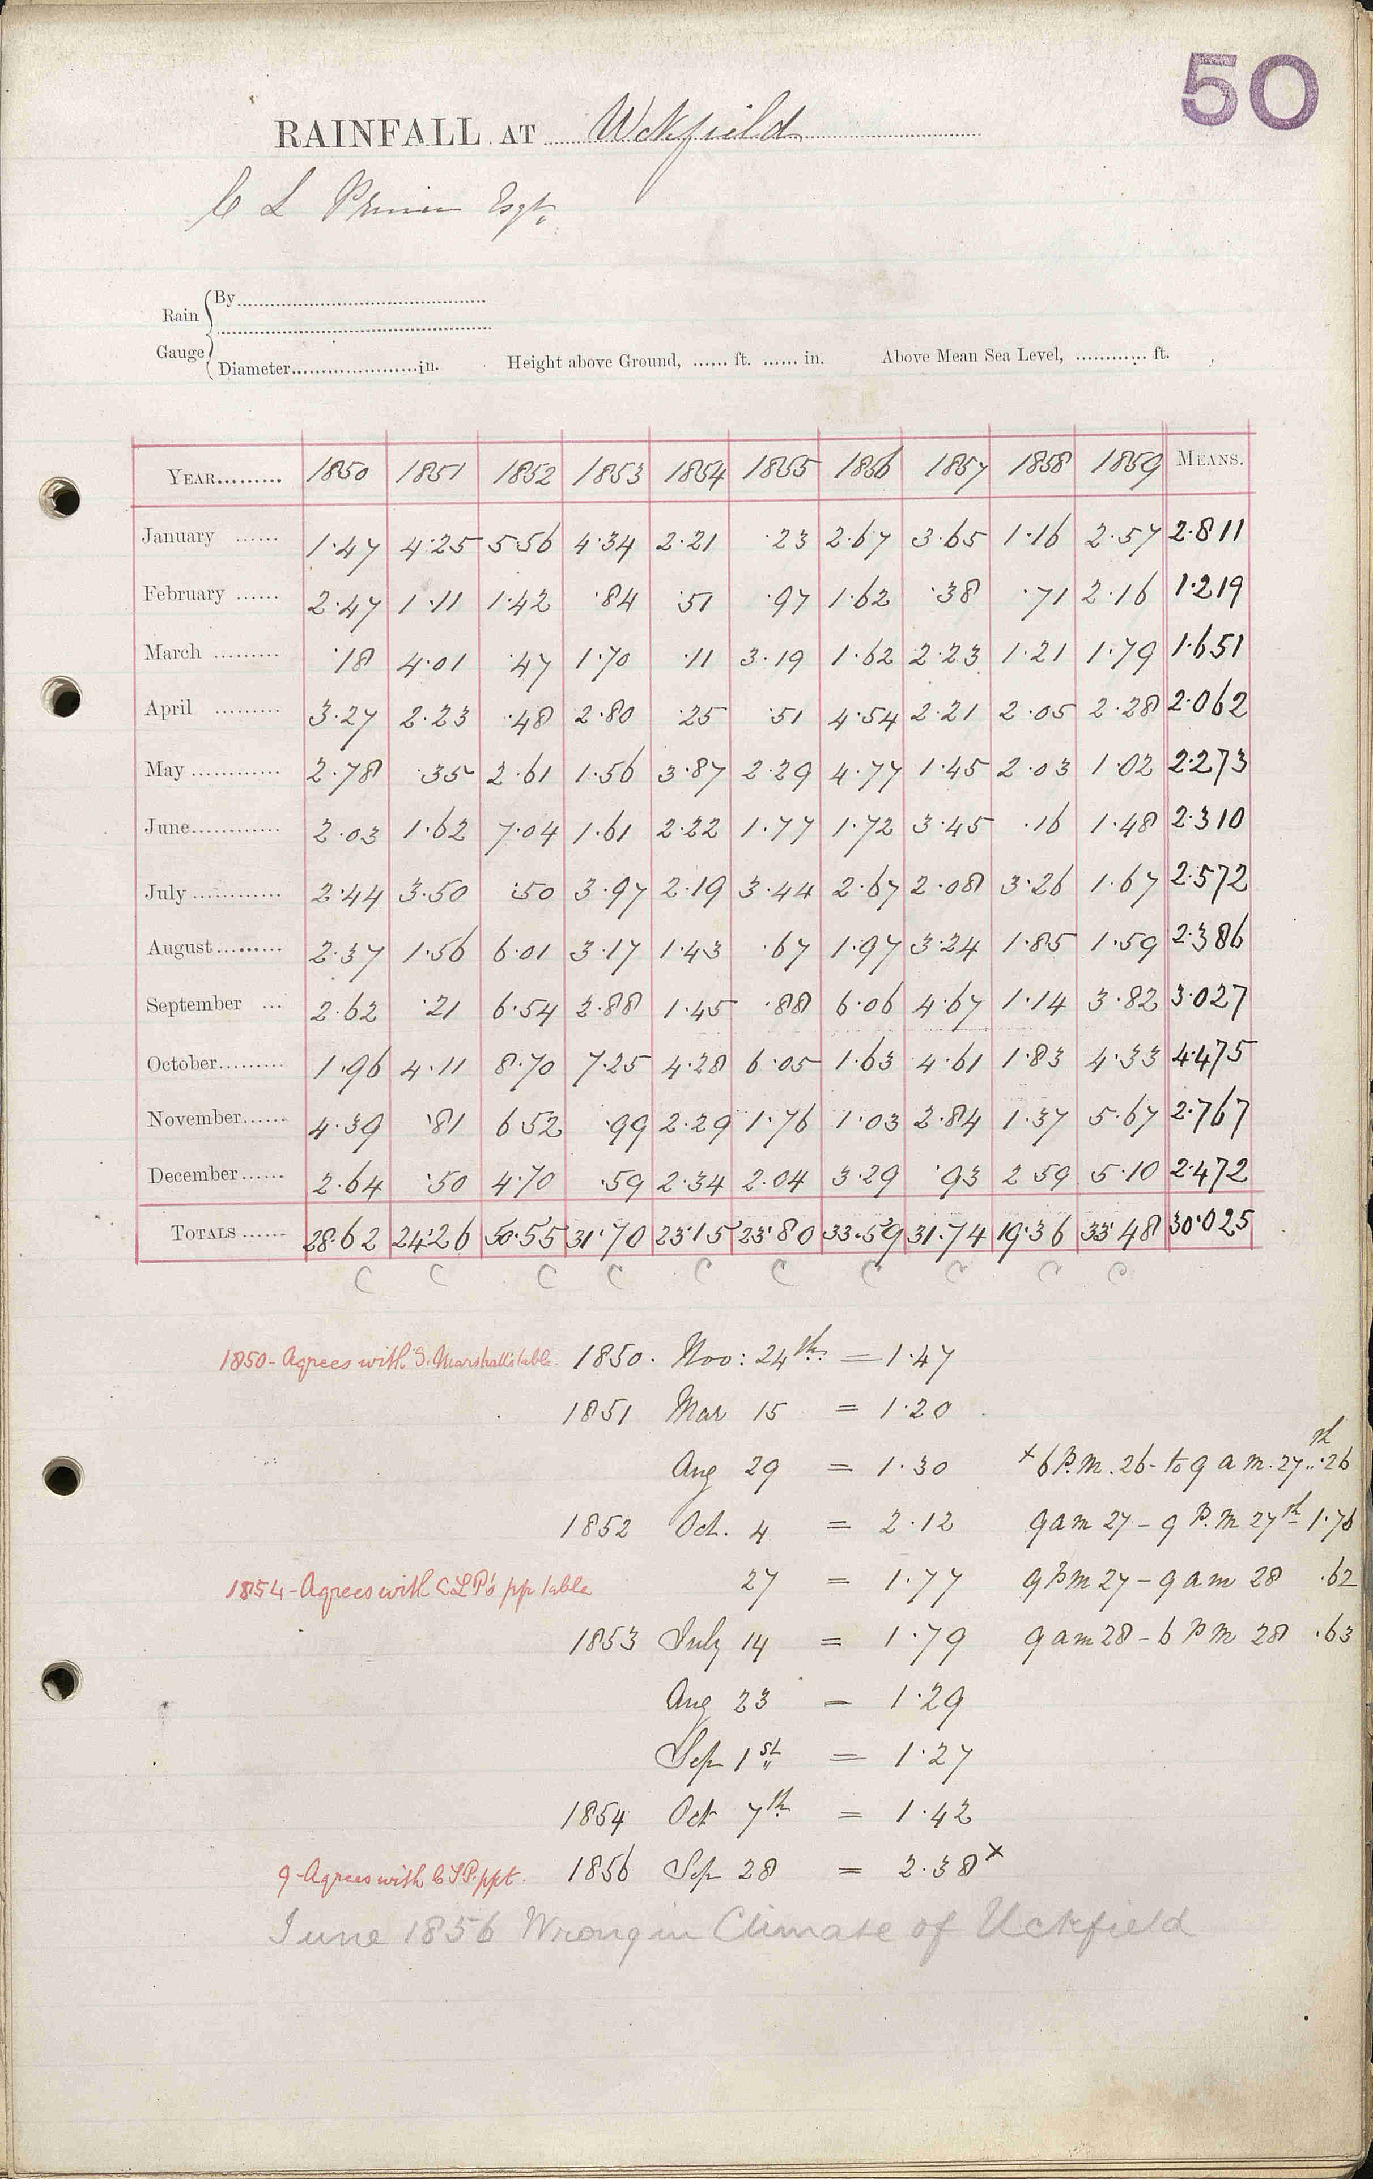 50
RAINFALL AT Uckfield
C L Prince Esqr.
Rain Gauge { By
Diameter in. Height above Ground, ...... ft. ...... in. Above Mean Sea Level, ............ ft.
YEAR......... 1850 1851 1852 1853 1854 1855 1856 1857 1858 1859 MEANS.
January ...... 1.47 4.25 5.56 4.34 2.21 .23 2.67 3.65 1.16 2.57 2.811
February ...... 2.47 1.11 1.42 .84 .51 .97 1.62 .38 .71 2.16 1.219
March ......... .18 4.01 .47 1.70 .11 3.19 1.62 2.23 1.21 1.79 1.651
April ......... 3.27 2.23 .48 2.80 .25 .51 4.54 2.21 2.05 2.28 2.062
May ............ 2.78 .35 2.61 1.56 3.87 2.29 4.77 1.45 2.03 1.02 2.273
June............ 2.03 1.62 7.04 1.61 2.22 1.77 1.72 3.45 .16 1.48 2.310
July ............ 2.44 3.50 .50 3.97 2.19 3.44 2.67 2.08 3.26 1.67 2.572
August......... 2.37 1.56 6.01 3.17 1.43 .67 1.97 3.24 1.85 1.59 2.386
September ... 2.62 .21 6.54 2.88 1.45 .88 6.06 4.67 1.14 3.82 3.027
October......... 1.96 4.11 8.70 7.25 4.28 6.05 1.63 4.61 1.83 4.33 4.475
November...... 4.39 .81 6.52 .99 2.29 1.76 1.03 2.84 1.37 5.67 2.767
December...... 2.64 .50 4.70 .59 2.34 2.04 3.29 .93 2.59 5.10 2.472
TOTALS ...... 28.62 24.26 50.55 31.70 23.15 23.80 33.59 31.74 19.36 33.48 30.025
C C C C C C C C C C
1850 - Agrees with S. Marshall's table. 1850. Nov: 24th = 1.47
1851 Mar 15 = 1.20
Aug 29 = 1.30 x 6 P.m. 26 - to 9 a m. 27th .26
1852 Oct. 4 = 2.12 9 am 27 - 9 P.m 27th 1.76
1854 - Agrees with C.L.P's pp table 27 = 1.77 9 Pm 27 - 9 am 28 .62
1853 July 14 = 1.79 9 am 28 - 6 Pm 28 .63
Aug 23 = 1.29
Sep 1st = 1.27
1854 Oct 7th = 1.42
9 - Agrees with C L P. ppt. 1856 Sep 28 = 2.38 x
June 1856 Wrong in Climate of Uckfield